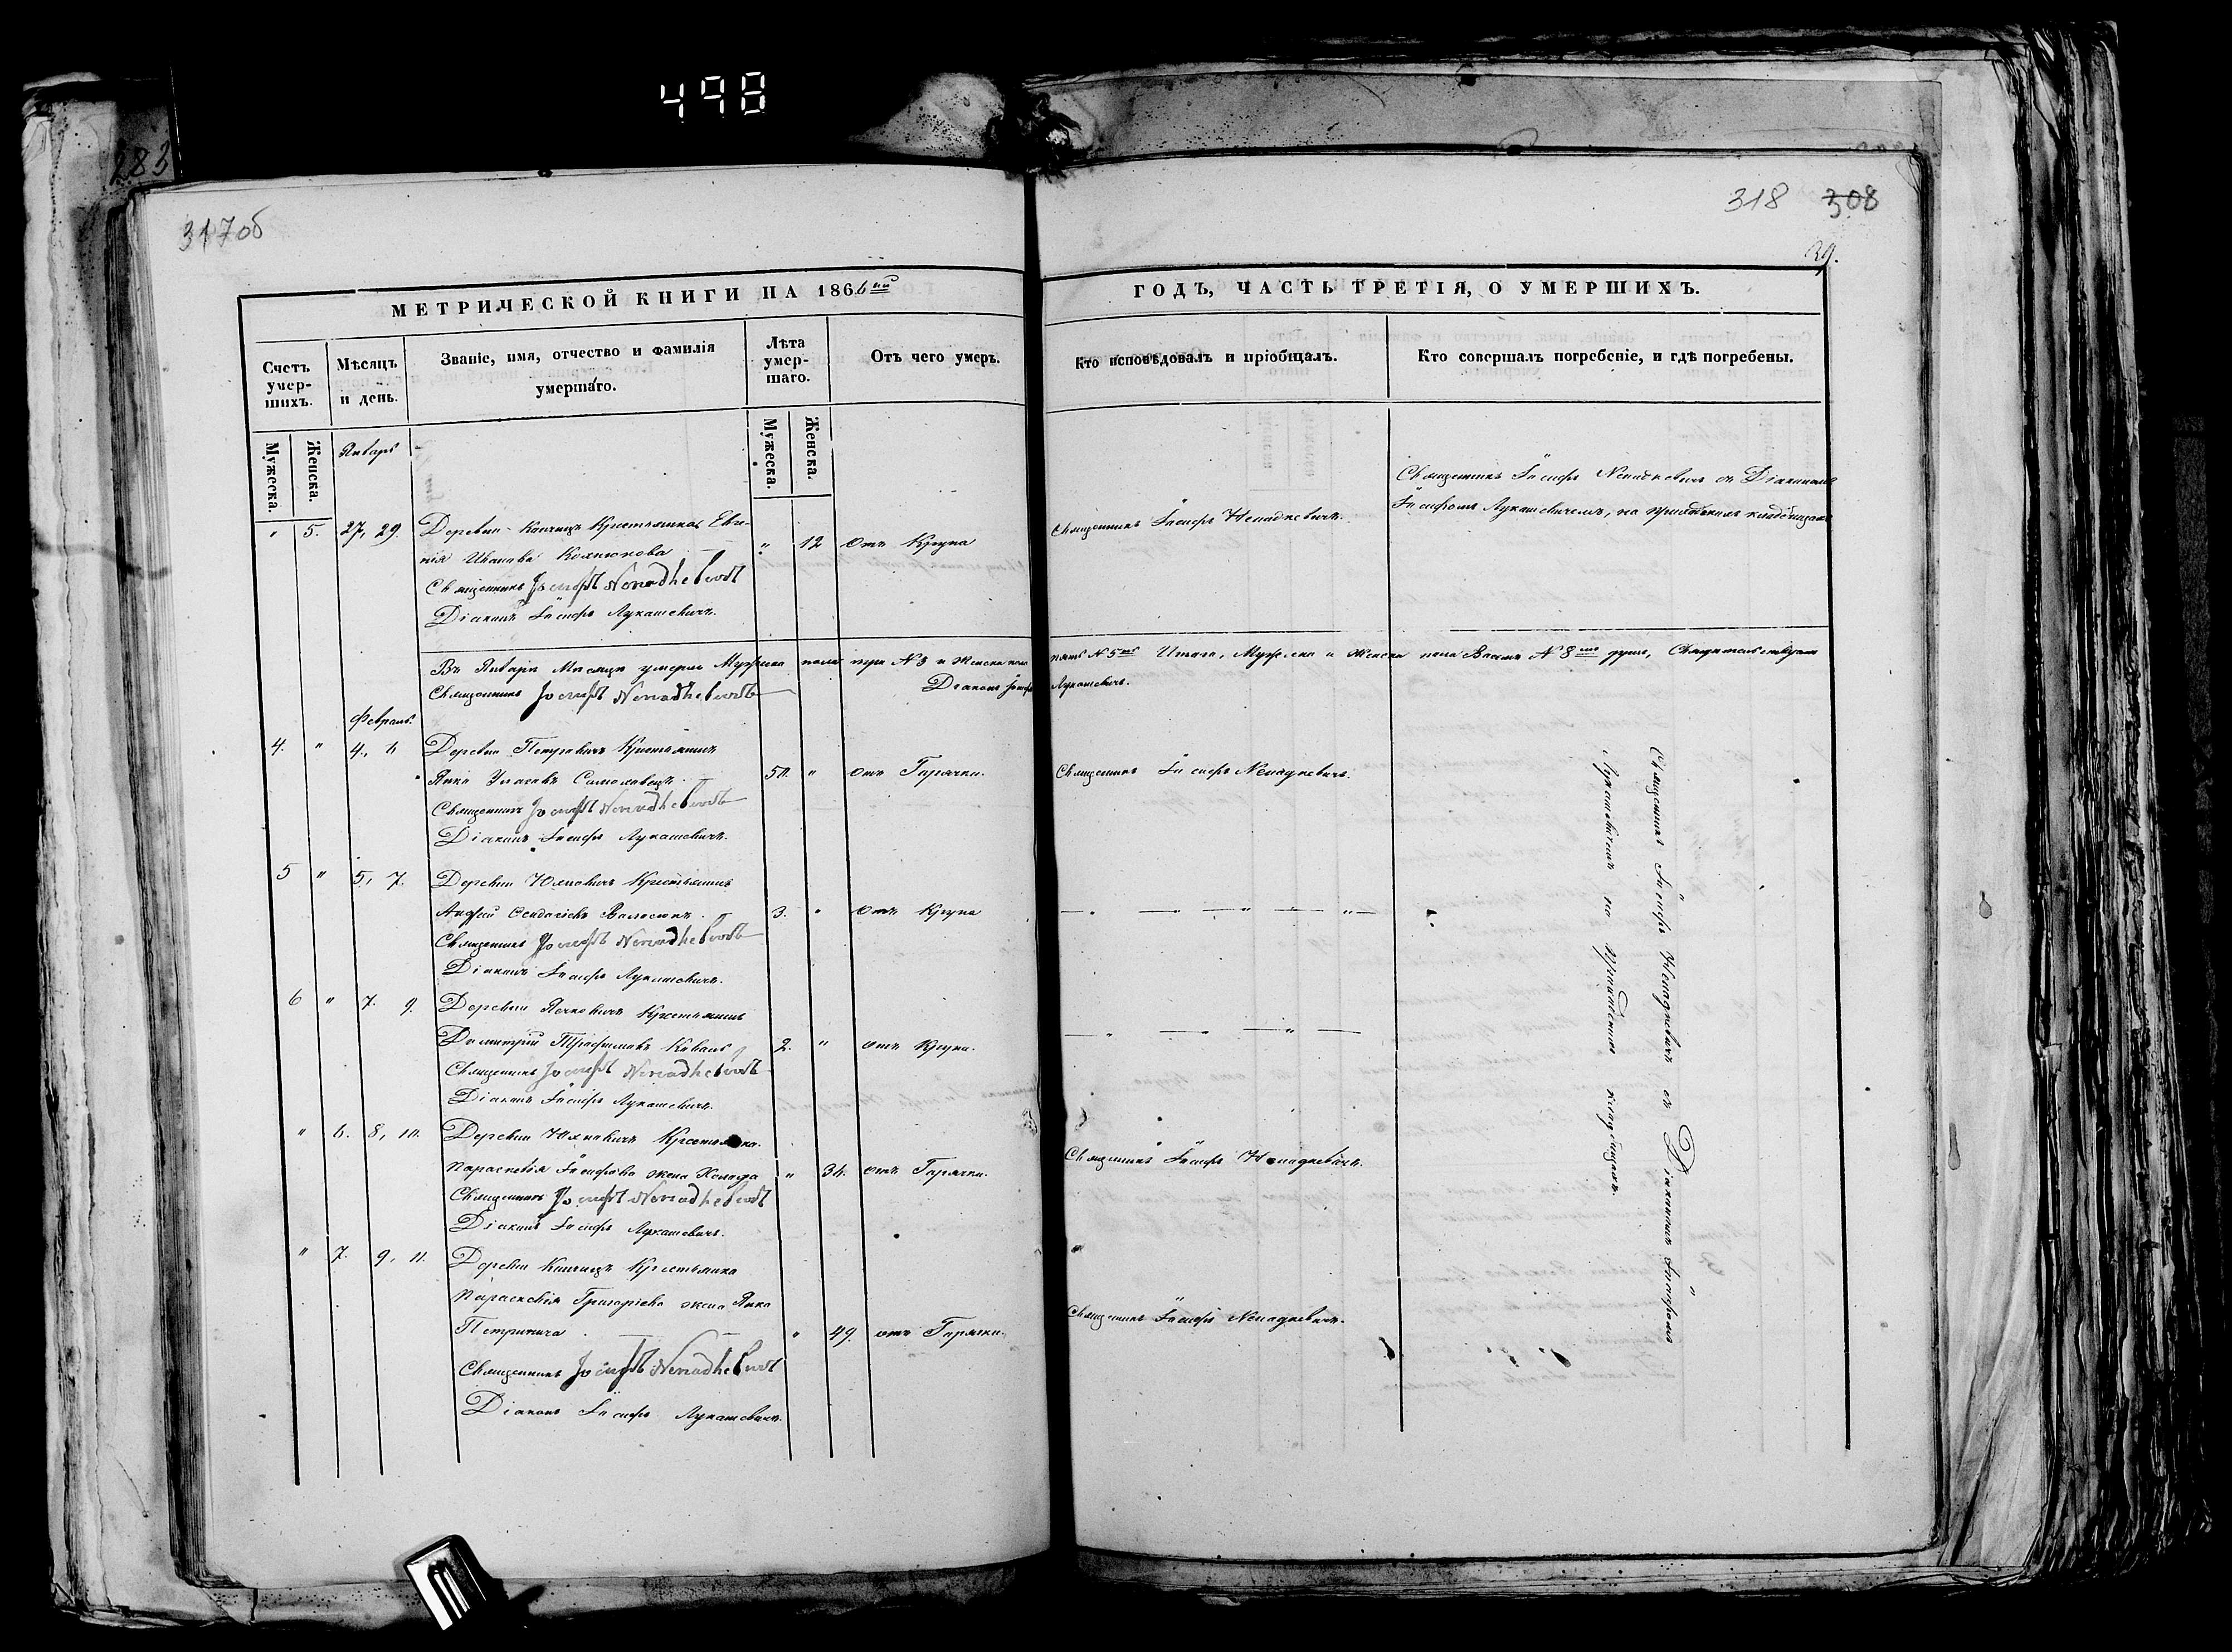 498
283
317об
318 308
39.
МЕТРИЧЕСКОЙ КНИГИ НА 1866ий
ГОДЪ, ЧАСТЬ ТРЕТІЯ, О УМЕРШИХЪ.
Счетъ умер-шихъ.
Мѣсяцъ и день.
Званіе, имя, отчество и фамилія
умершаго.
Лѣта умер-шаго.
Отъ чего умеръ.
Кто исповѣдовалъ и пріобщалъ.
Кто совершалъ погребеніе, и гдѣ погребены.
Мужеска.
Женска.
Январь
Мужеска.
Женска.
" 5. 27, 29. Деревни Крестьянка Евге-
нія Иванова " 12 Отъ Крупа
Священникъ Іосифъ Ненадкевичъ.
Священникъ Іосифъ Ненадкевичъ съ Діакономъ
Іосифомъ Лукашевичемъ, на приходскомъ кладбищѣ
Священникъ Іосифъ Ненадкевичъ
Діаконъ Іосифъ Лукашевичъ.
Въ Январѣ Мѣсяцѣ умерло Мужеска пола три №3 и Женска пола пять №5ть Итого, Мужеска и Женска пола Восемь №8мь душъ,
Священникъ Іосифъ Ненадкевичъ Діаконъ Іосифъ Лукашевичъ.
Февраль.
4. " 4, 6 Деревни Крестьянинъ
50. " отъ Горячки. Священникъ Іосифъ Ненадкевичъ.
Священникъ Іосифъ Ненадкевичъ
Діаконъ Іосифъ Лукашевичъ.
5 " 5, 7. Деревни Юхновичъ Крестьянинъ
3. " Отъ Крупа
Священникъ Іосифъ Ненадкевичъ
Діаконъ Іосифъ Лукашевичъ.
6 " 7. 9. Деревни Крестьянинъ
Димитрій Коваль 2. " отъ Крупа.
Священникъ Іосифъ Ненадкевичъ
Діаконъ Іосифъ Лукашевичъ.
" 6. 8, 10. Деревни Юхновичъ Крестьянка.
Параскевія Іосифова жена " 34. отъ Горячки. Священникъ Іосифъ Ненадкевичъ.
Священникъ Іосифъ Ненадкевичъ
Діаконъ Іосифъ Лукашевичъ.
" 7. 9, 11. Деревни Крестьянка
Параскевія Григоріева жена
" 49. отъ Горячки. Священникъ Іосифъ Ненадкевичъ.
Священникъ Іосифъ Ненадкевичъ
Діаконъ Іосифъ Лукашевичъ.
Священникъ Іосифъ Ненадкевичъ съ Діакономъ Іосифомъ
Лукашевичемъ на приходскомъ кладбищѣ.